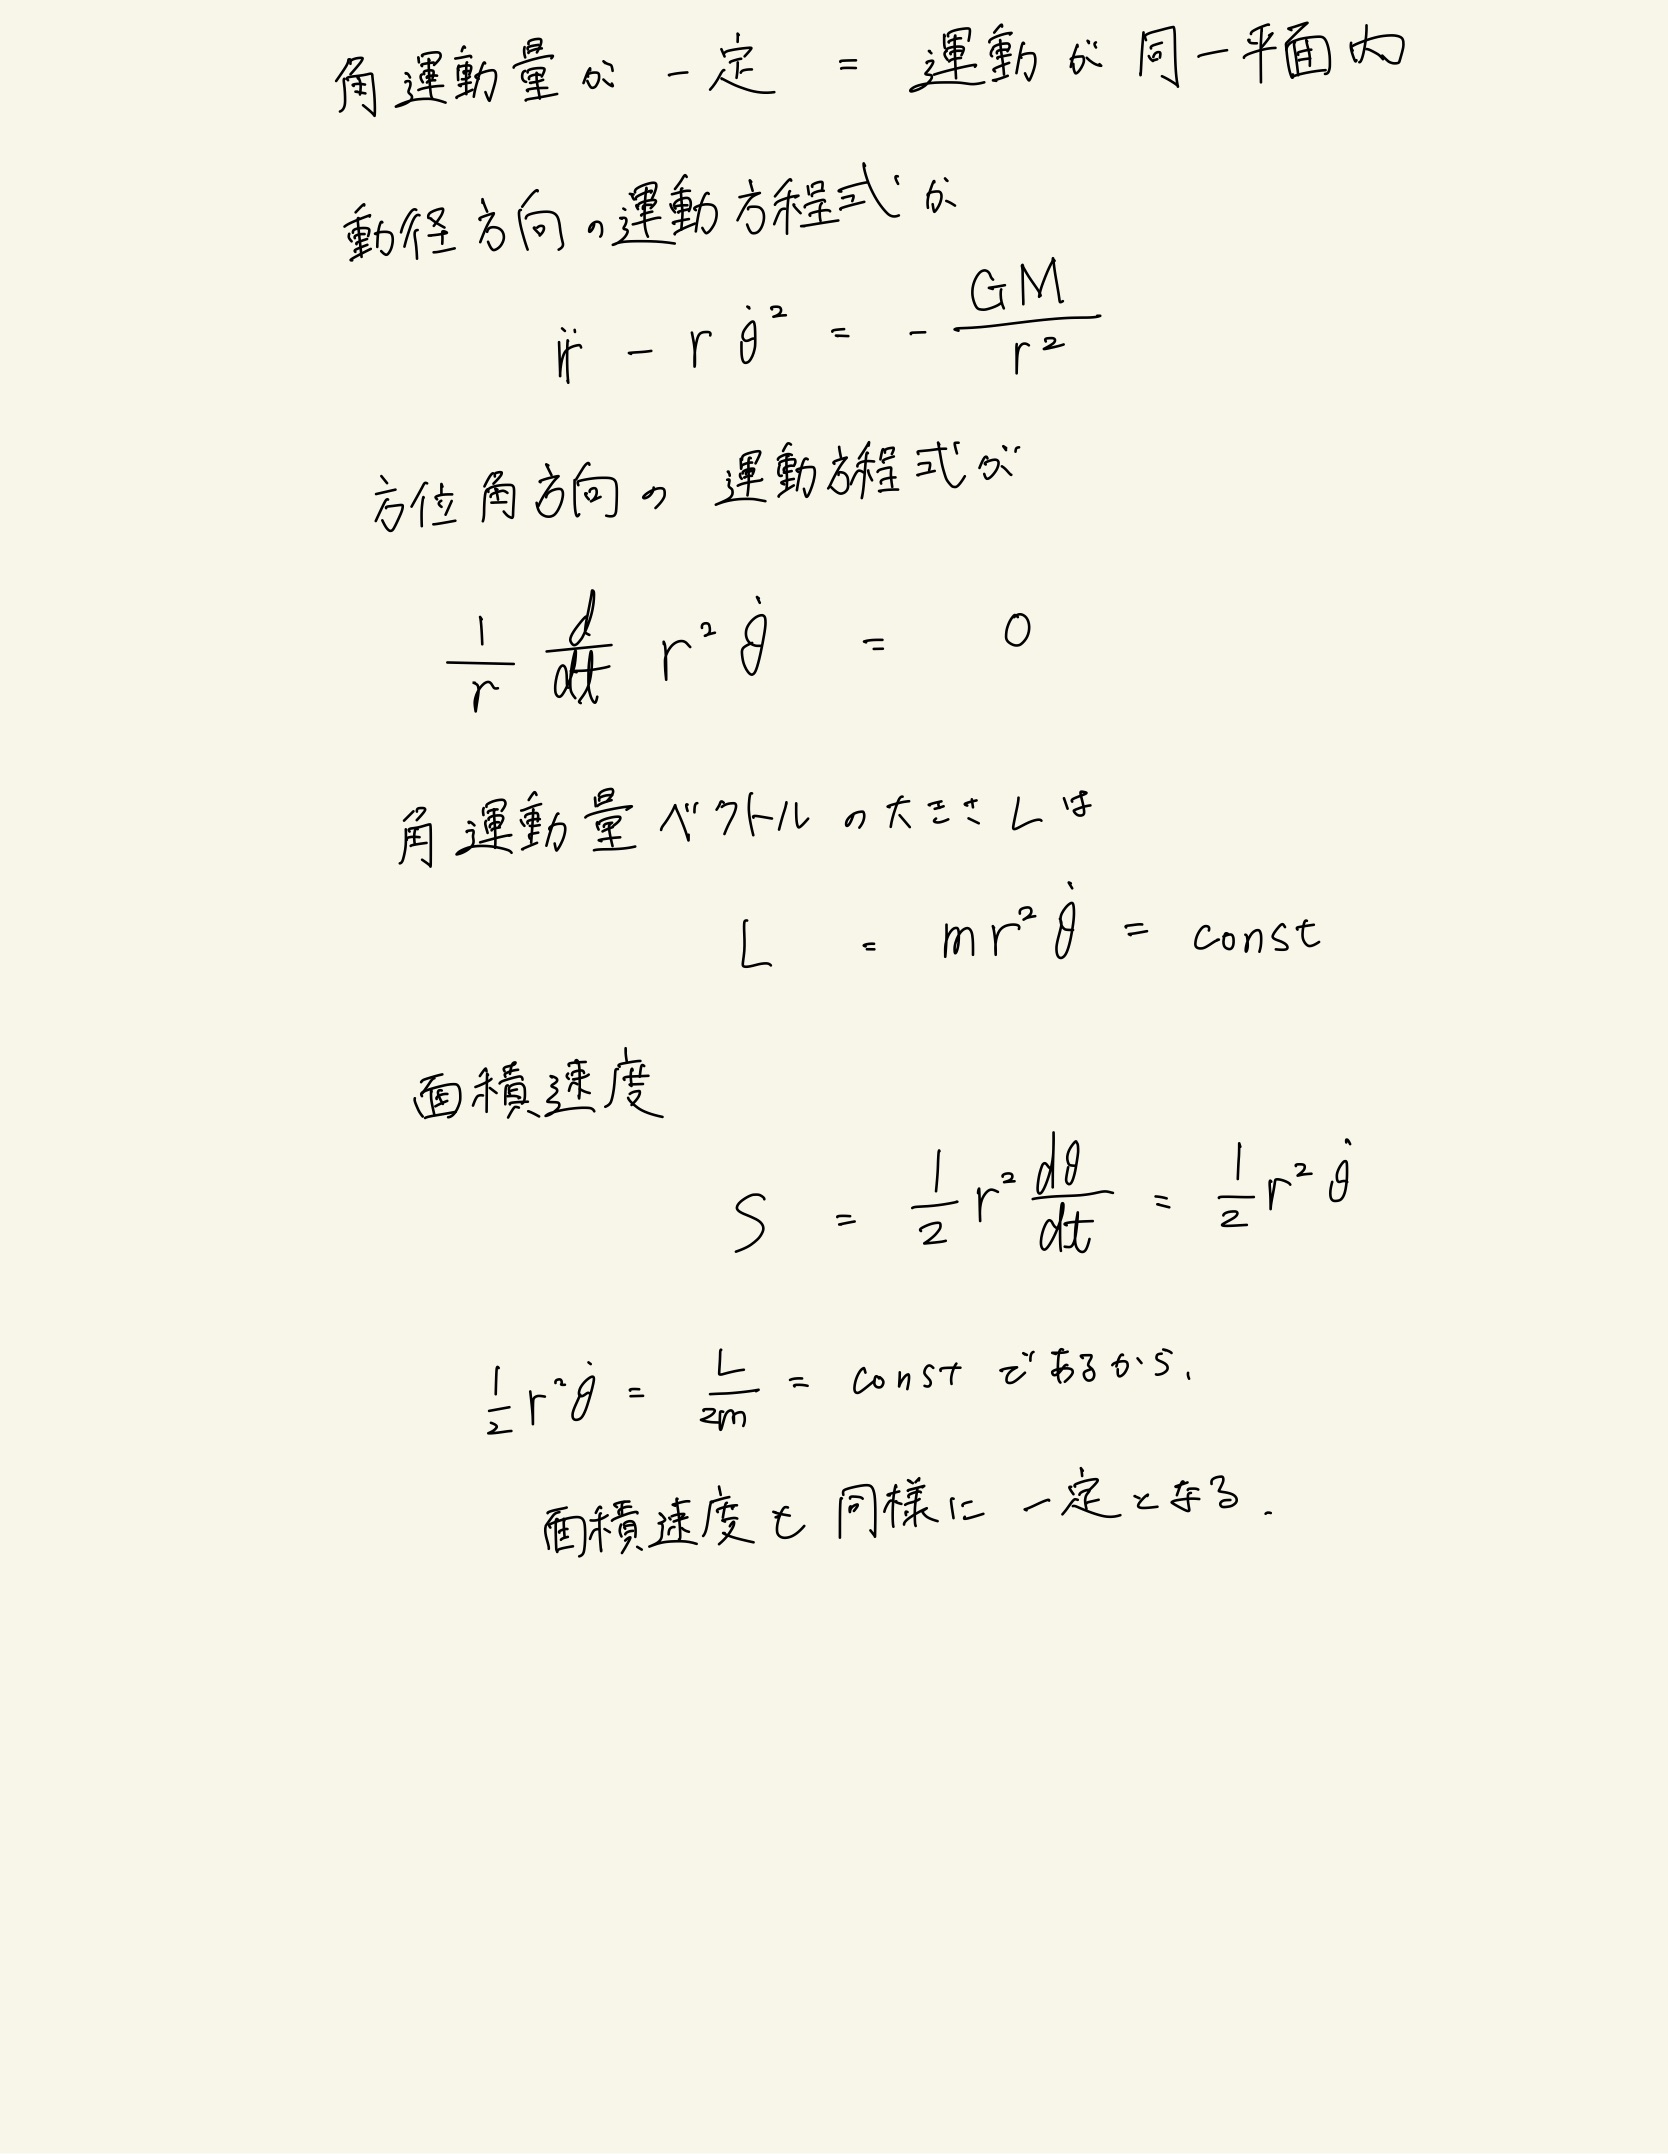 角運動量が一定 = 運動が同一平面内
動径方向の運動方程式が
r̈ - rθ̇² = - GM/r²
方位角方向の運動方程式が
1/r d/dt r²θ̇ = 0
角運動量ベクトルの大きさLは
L = mr²θ̇ = const
面積速度
S = 1/2 r² dθ/dt = 1/2 r²θ̇
1/2 r²θ̇ = L/2m = constであるから、
面積速度も同様に一定となる.